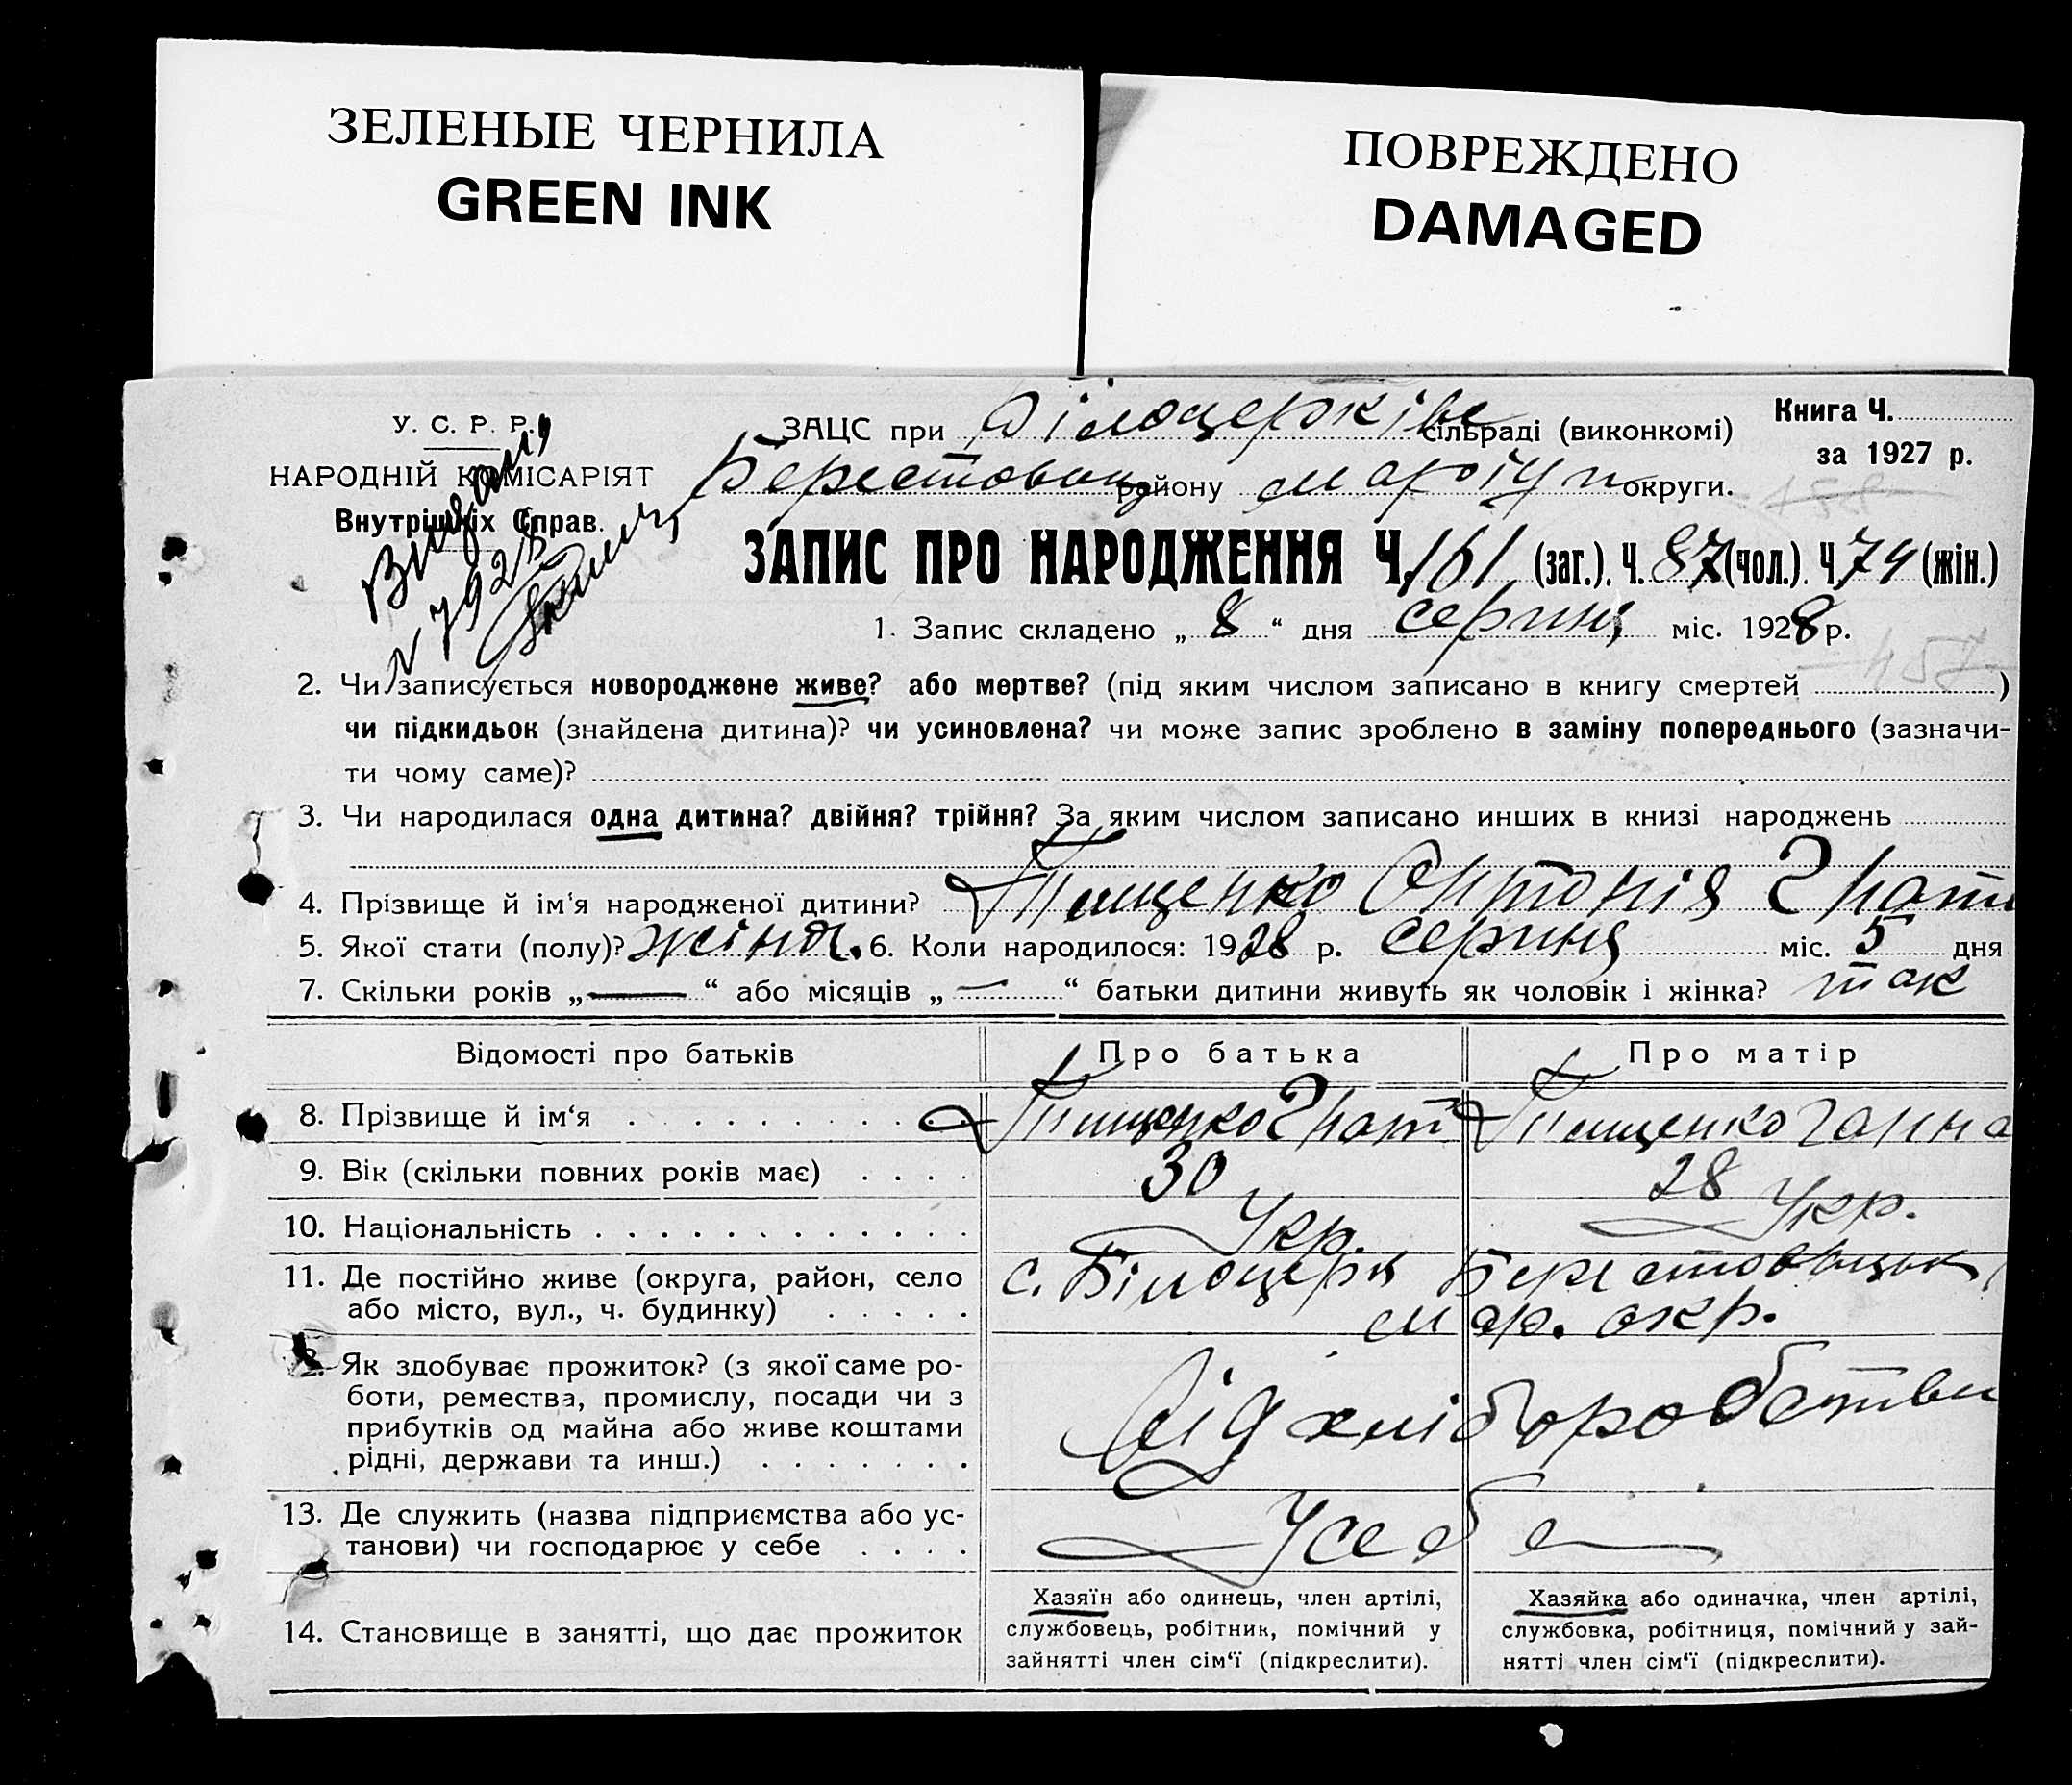 ЗЕЛЕНЫЕ ЧЕРНИЛА
GREEN INK
ПОВРЕЖДЕНО
DAMAGED
У. С. Р. Р.
НАРОДНІЙ КОМІСАРІЯТ
Внутрішніх Справ.
ЗАЦС при Білоцерківс сільраді (виконкомі)
Книга Ч.
за 1927 р.
Берестовец району маріуп округи.
ЗАПИС ПРО НАРОДЖЕННЯ Ч. 161 (заг.). Ч. 87 (чол.). Ч 74 (жін.)
1. Запис складено „ 8 “ дня серпня міс. 1928 р.
2. Чи записується новороджене живе? або мертве? (під яким числом записано в книгу смертей )
чи підкидьок (знайдена дитина)? чи усиновлена? чи може запис зроблено в заміну попереднього (зазначи-
ти чому саме)?
3. Чи народилася одна дитина? двійня? трійня? За яким числом записано инших в книзі народжень
4. Прізвище й ім'я народженої дитини? Тищенко Антонія Гнатів
5. Якої стати (полу)? жіноч. 6. Коли народилося: 1928 р. серпня міс. 5 дня
7. Скільки років „ — “ або місяців „ — “ батьки дитини живуть як чоловік і жінка? так
Відомості про батьків
Про батька
Про матір
8. Прізвище й ім‘я
Тищенко Гнат
Тищенко Ганна
9. Вік (скільки повних років має)
30
28
10. Національність
Укр.
Укр.
11. Де постійно живе (округа, район, село
або місто, вул., ч. будинку)
с. Білоцерк Берестовецьк
мар. окр.
12. Як здобуває прожиток? (з якої саме ро-
боти, ремества, промислу, посади чи з
прибутків од майна або живе коштами
рідні, держави та инш.)
Від хліборобства
13. Де служить (назва підприємства або ус-
танови) чи господарює у себе
У себе
14. Становище в занятті, що дає прожиток
Хазяїн або одинець, член артілі,
службовець, робітник, помічний у
зайнятті член сім‘ї (підкреслити).
Хазяйка або одиначка, член артілі,
службовка, робітниця, помічний у зай-
нятті член сім‘ї (підкреслити).